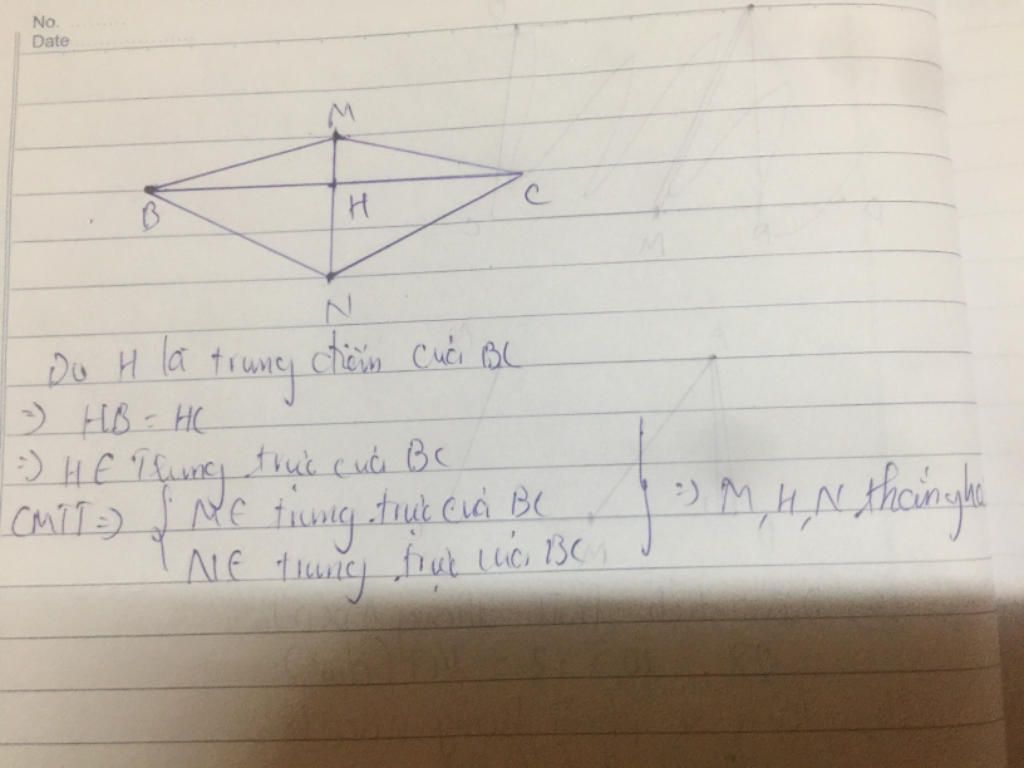 No.
Date
M
B
H
C
N
Do H là trung điểm của BC
=) HB = HC
=) H ∈ Trung trực của BC
CMTT =) { M ∈ trung trực của BC } =) M, H, N thẳng hà
N ∈ trung trực của BC